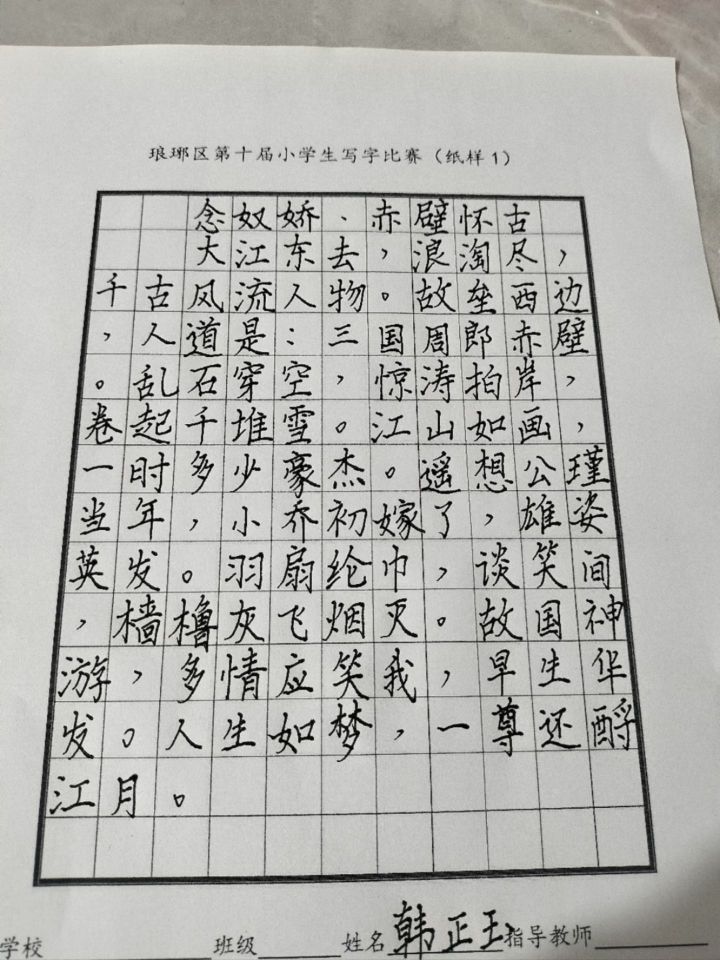 琅琊区第十届小学生写字比赛（纸样1）
念奴娇·赤壁怀古
大江东去，浪淘尽，
千古风流人物。故垒西边
，人道是：三国周郎赤壁
。乱石穿空，惊涛拍岸，
卷起千堆雪。江山如画，
一时多少豪杰。遥想公瑾
当年，小乔初嫁了，雄姿
英发。羽扇纶巾，谈笑间
，樯橹灰飞烟灭。故国神
游，多情应笑我，早生华
发。人生如梦，一尊还酹
江月。
学校 班级 姓名 韩正玉 指导教师